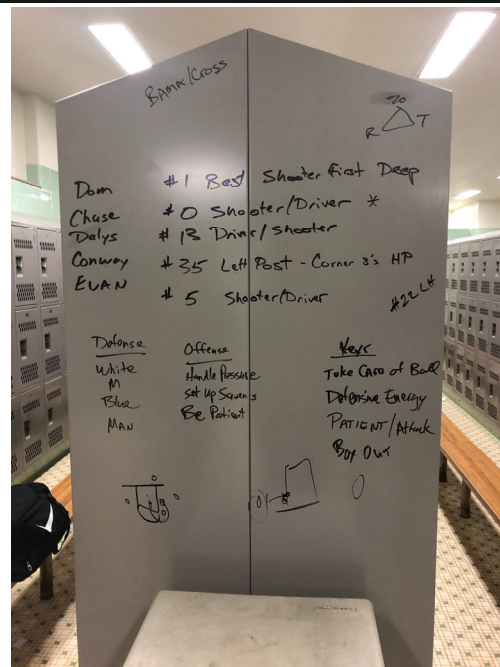 BAMA/CROSS
20
R T
Dom #1 Best Shooter First Deep
Chase #0 Shooter/Driver *
Dalys #13 Driver/Shooter
Conway #35 Left Post - Corner 3's HP
EVAN #5 Shooter/Driver
#22 LH
Defense
White
M
Blue
MAN
Offense
Handle Pressure
Set Up Screens
Be Patient
Keys
Take Care of Ball
Defensive Energy
PATIENT/Attack
Box Out